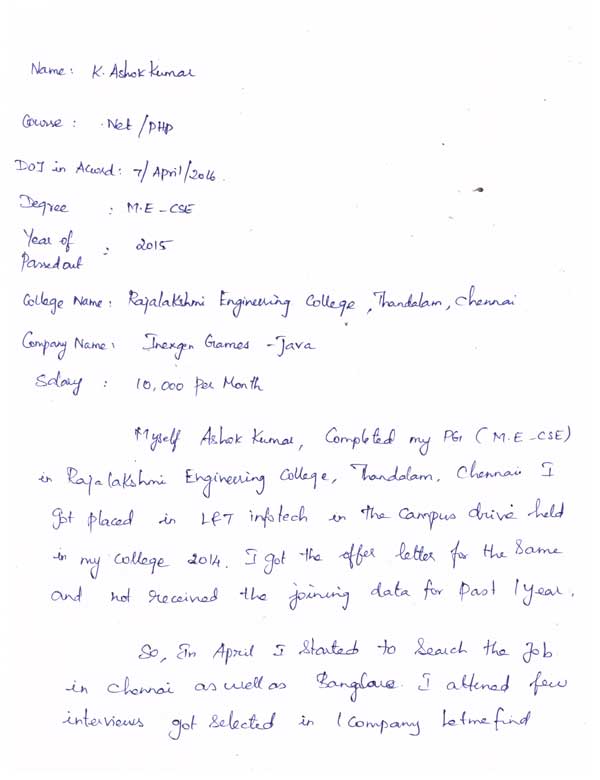 Name: K. Ashok Kumar
Course: .Net/PHP
DOJ in Accord: 7/April/2016.
Degree : M.E-CSE
Year of
Passedout : 2015
College Name: Rajalakshmi Engineering College, Thandalam, Chennai
Company Name: Inexgen Games -Java
Salary : 10,000 Per Month
Myself Ashok Kumar, Completed my PG (M.E-CSE)
in Rajalakshmi Engineering College, Thandalam, Chennai I
got placed in L&T infotech in the campus drive held
in my college 2014. I got the offer letter for the same
and not received the joining data for past 1 year.
So, In April I started to Search the Job
in Chennai as well as Banglore. I attened few
interviews got selected in 1 company let me find